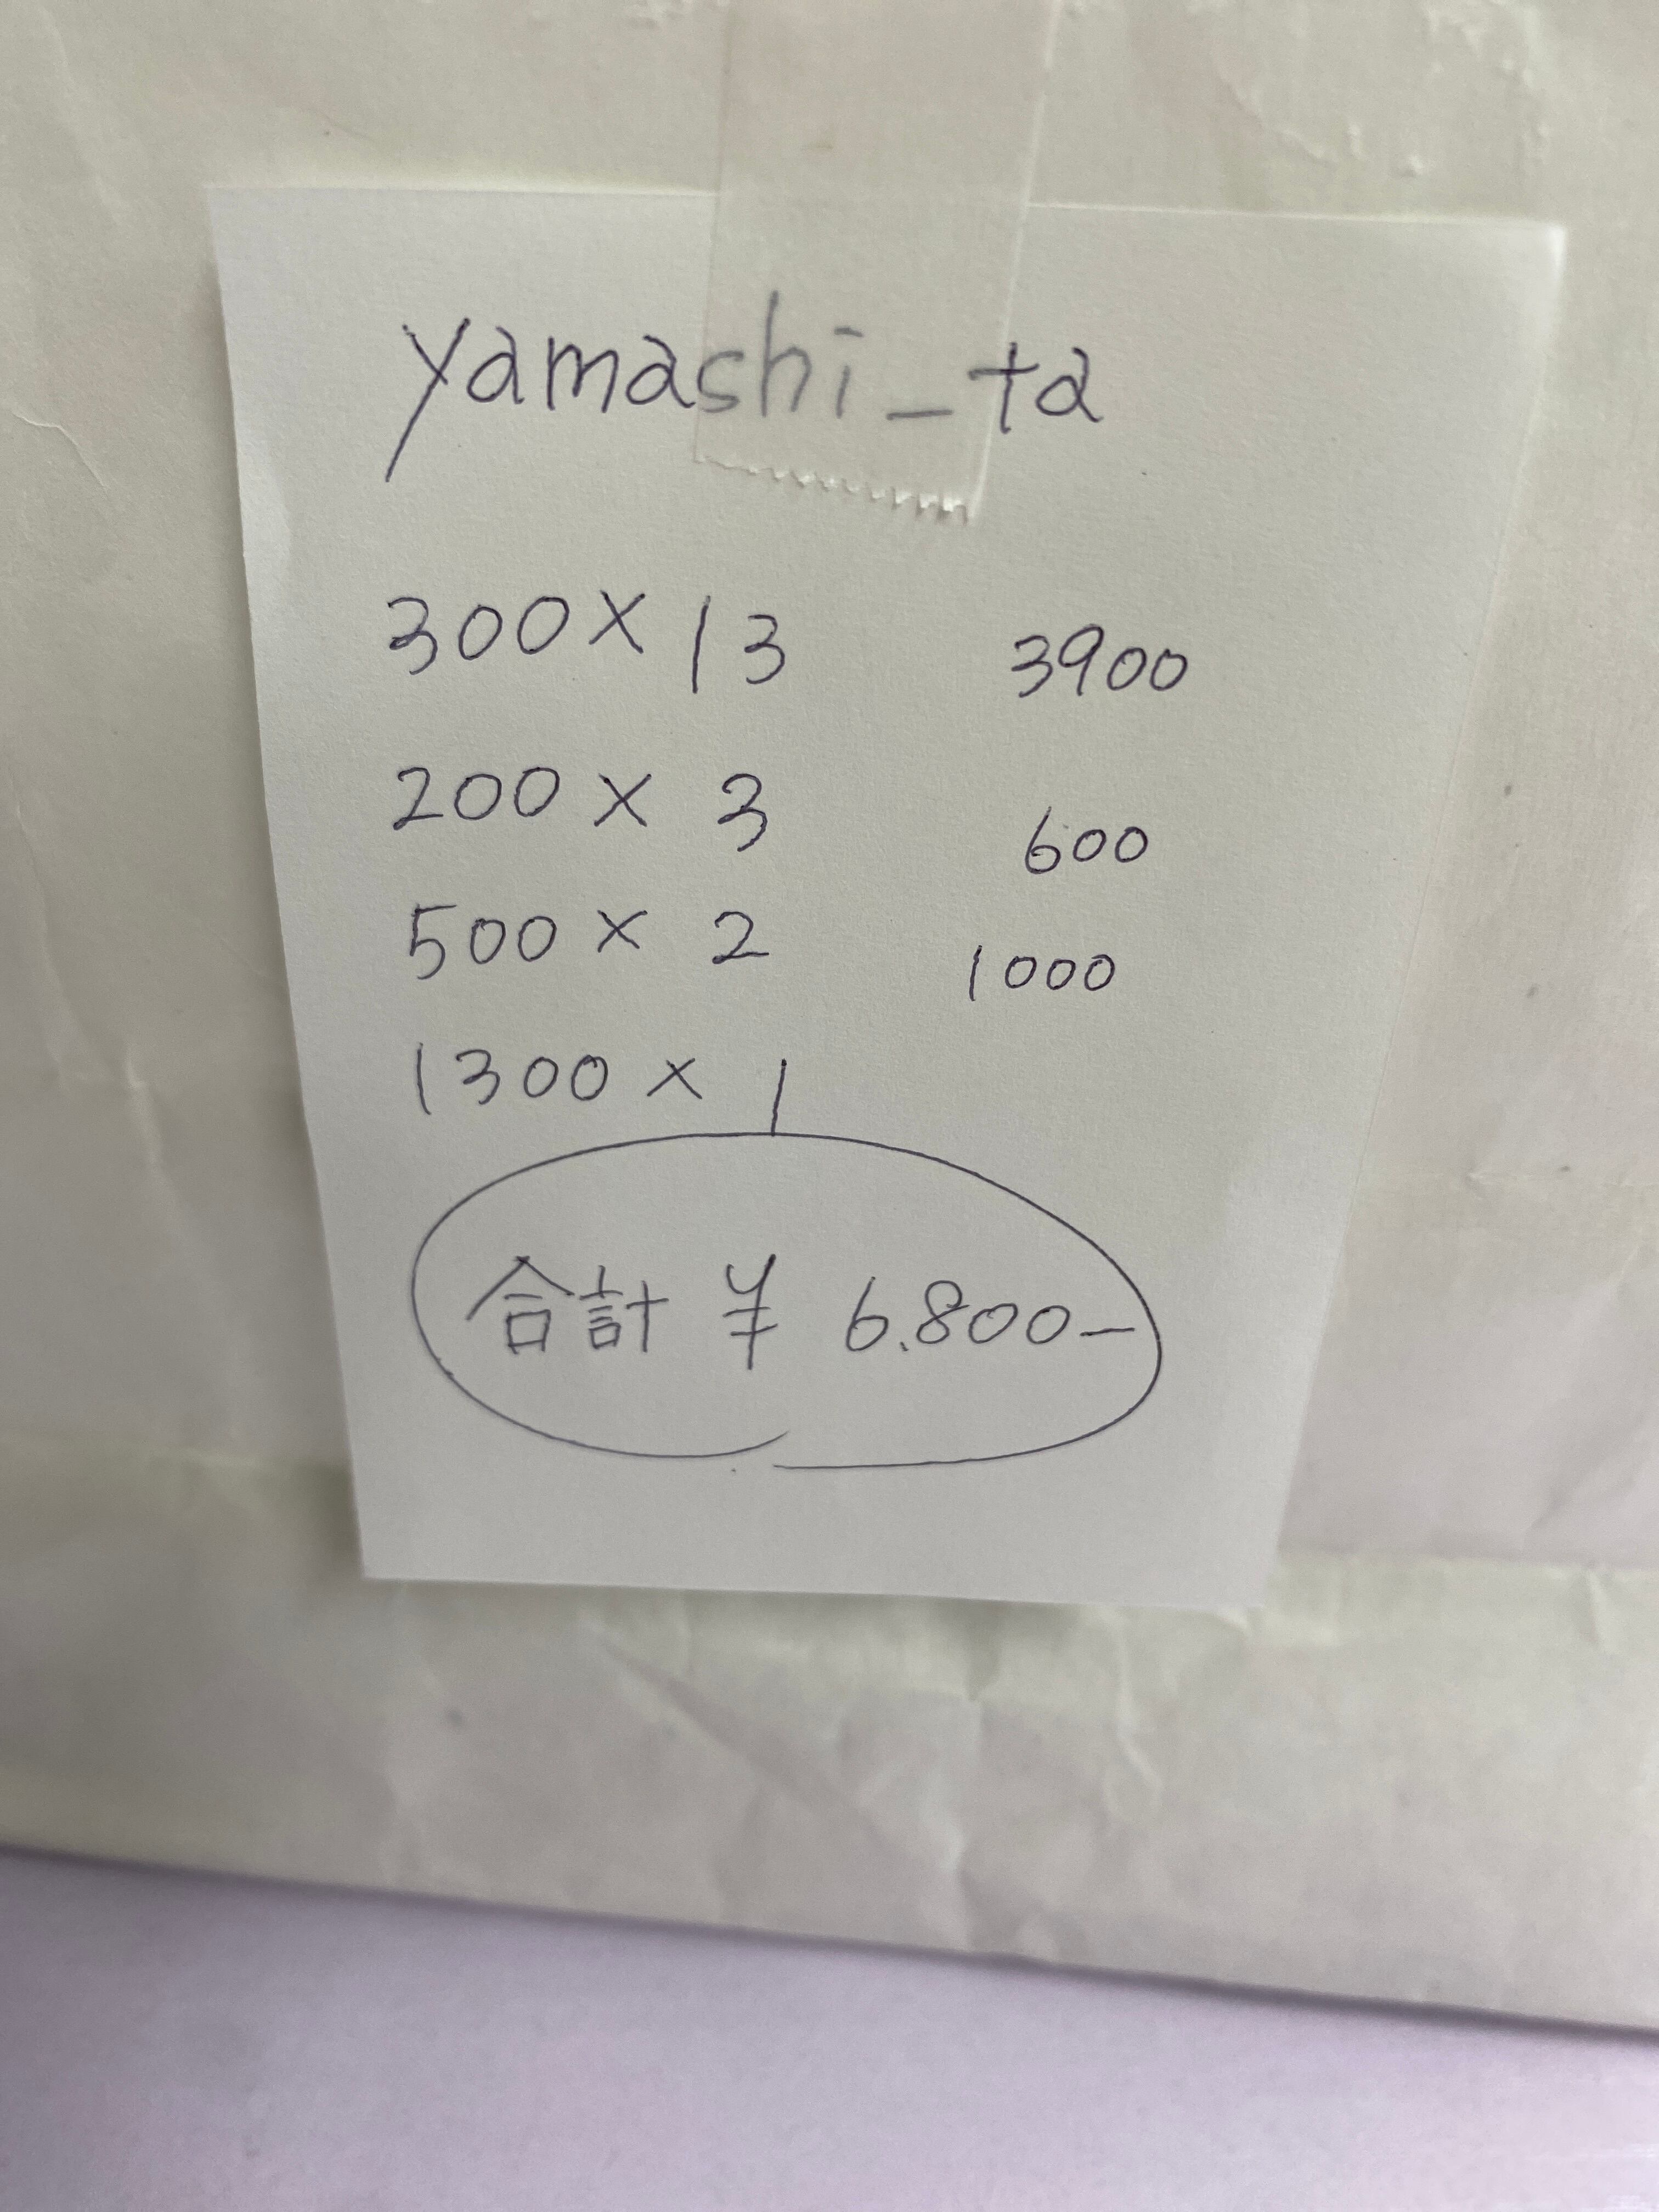 yamashi_ta
300 × 13 3900
200 × 3 600
500 × 2 1000
1300 × 1
合計 ¥ 6.800–